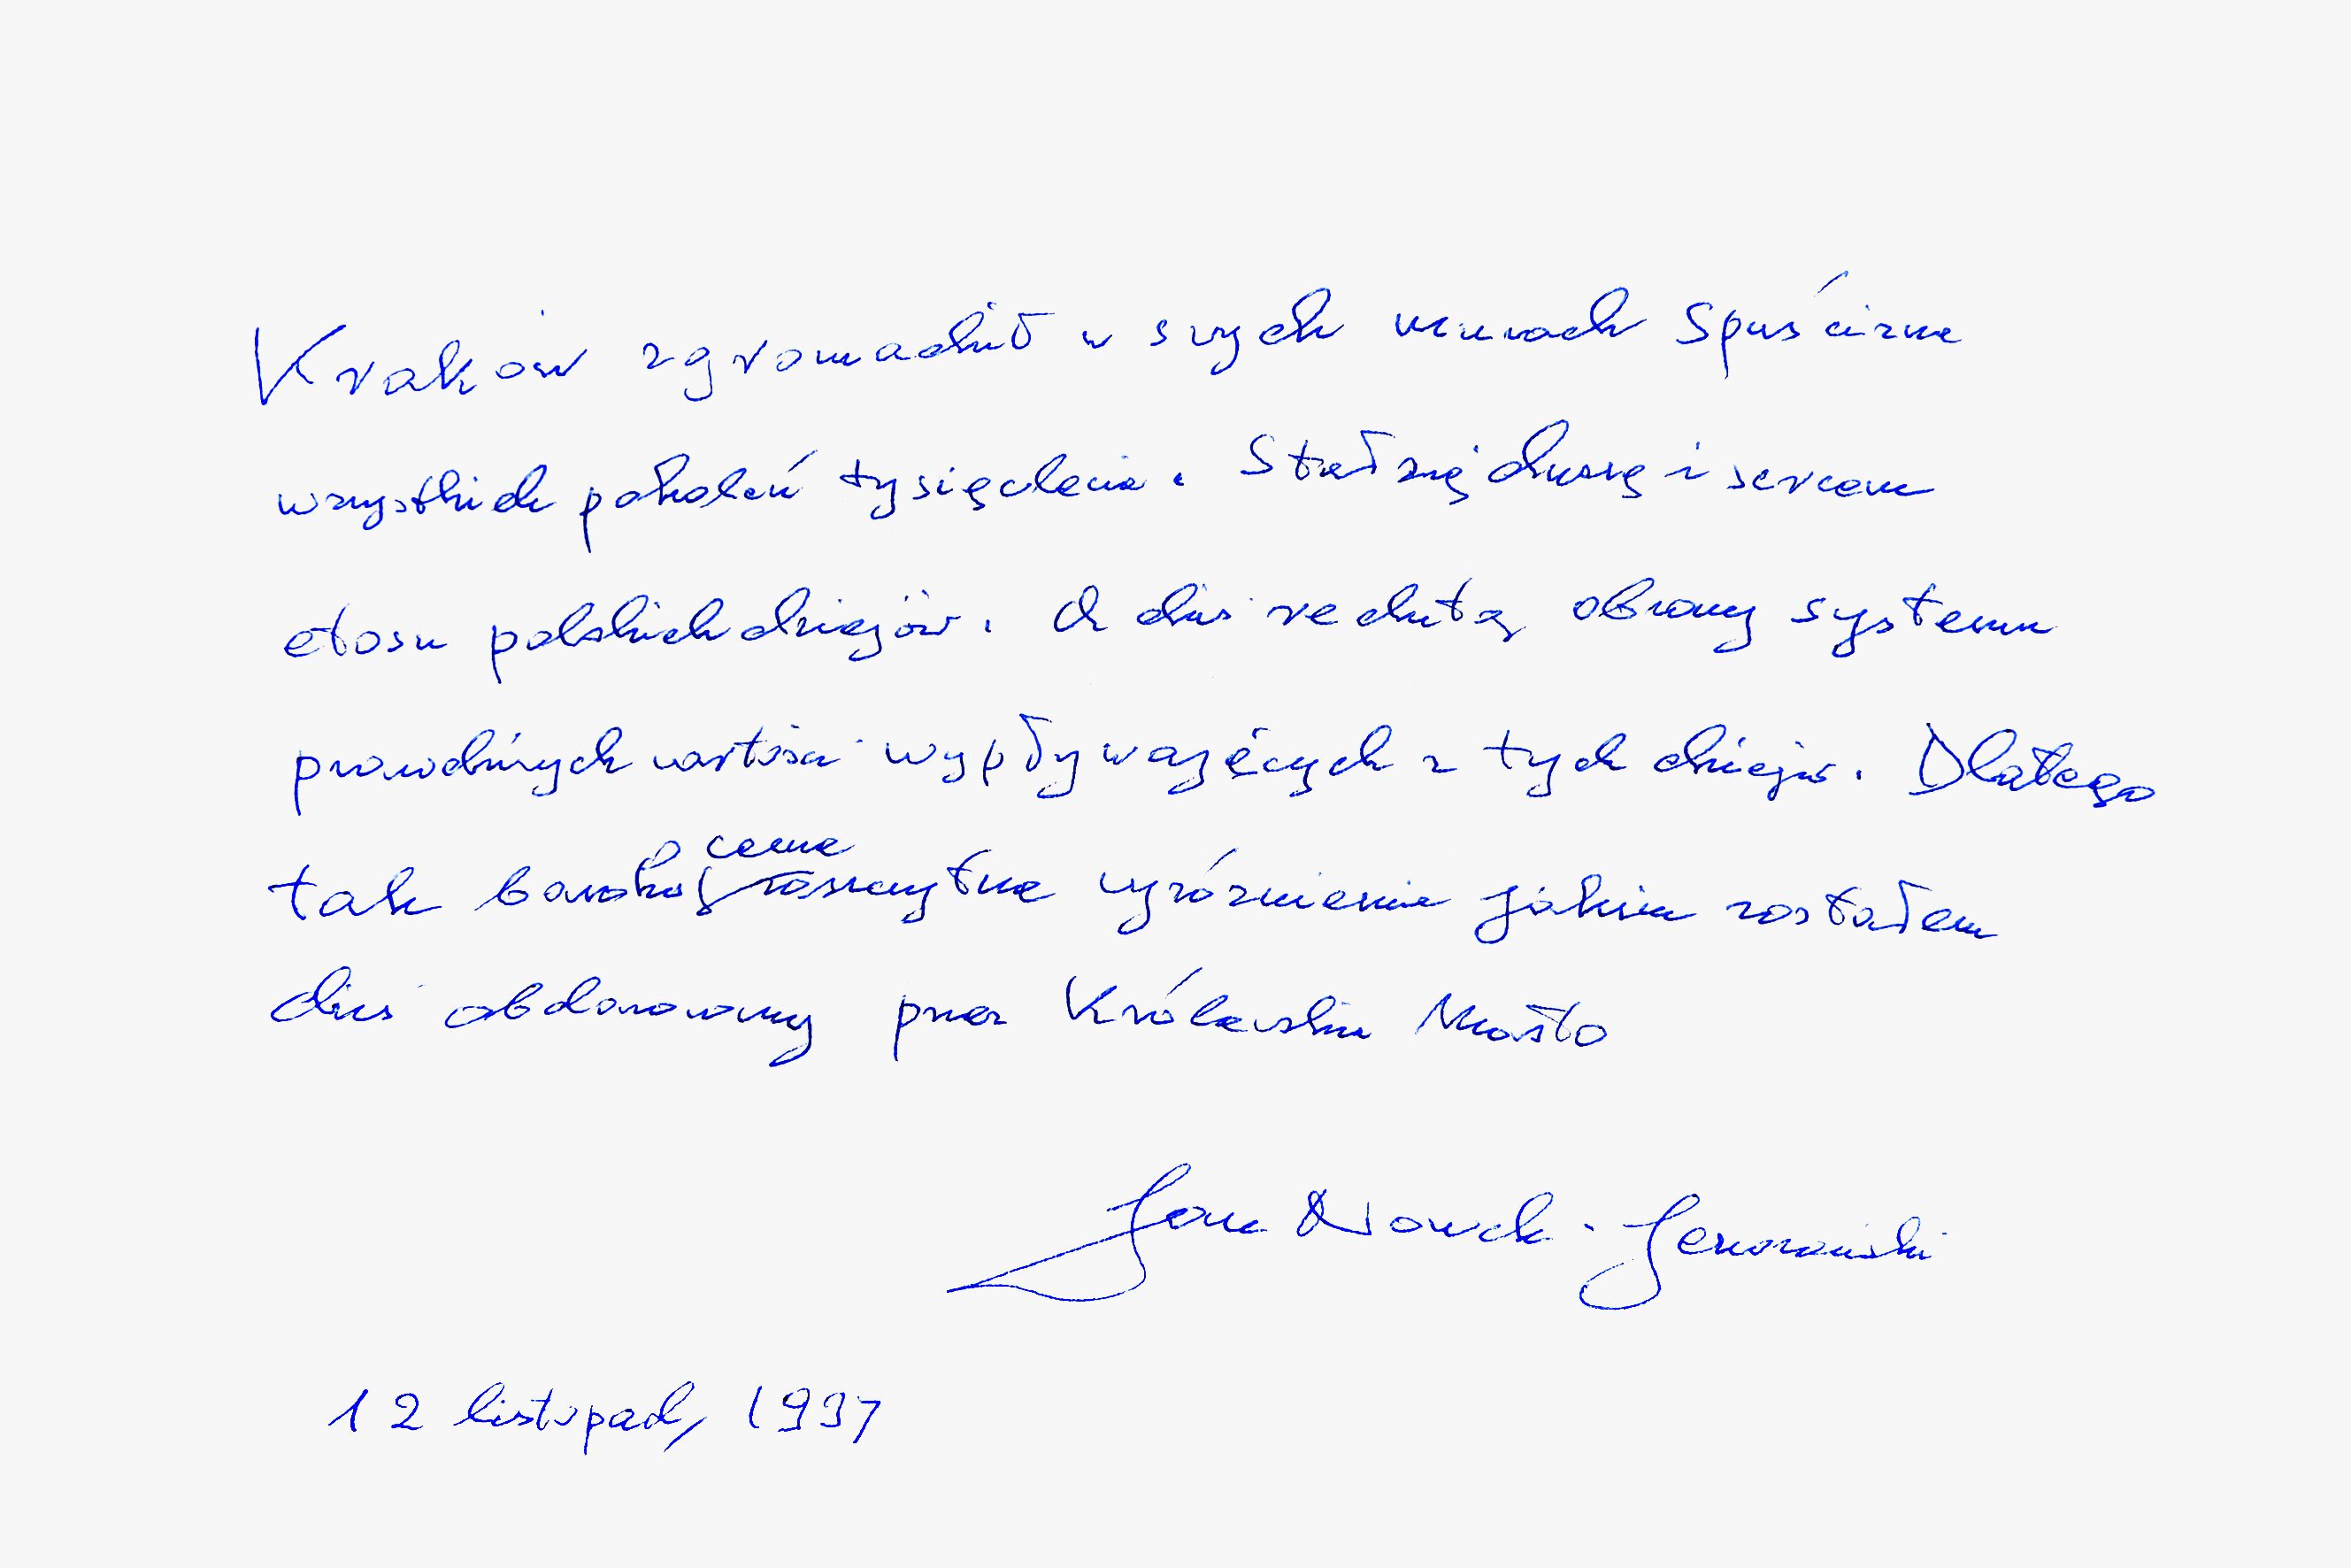 Kraków zgromadził w swych murach spuściznę
wszystkich pokoleń tysiąclecia. Stał się duszą i sercem
etosu polskich dziejów. A dziś redutą obrony systemu
prawdziwych wartości wypływających z tych dziejów. Dlatego
cenię
tak bardzo zaszczytne wyróżnienie jakim zostałem
dziś obdarowany przez Królewskie Miasto
Jan Nowak-Jeziorański
12 listopad, 1997